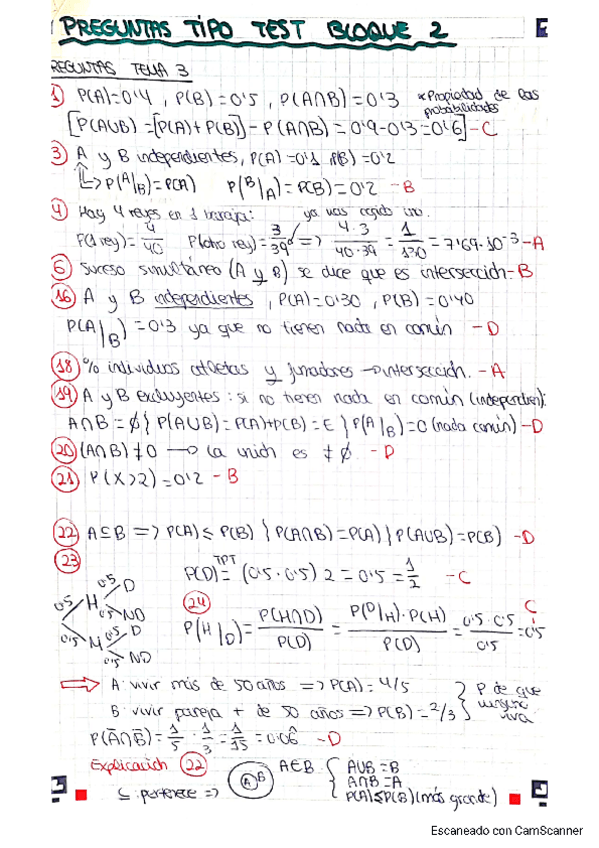 PREGUNTAS TIPO TEST BLOQUE 2
REGUNTAS TEMA 3
1) P(A)=0'4 , P(B)=0'5 , P(A∩B)=0'3 *Propiedad de las probabilidades
[P(A∪B)=[P(A)+P(B)]-P(A∩B)=0'9-0'3=0'6]-C
3) A y B independientes, P(A)=0'1 P(B)=0'2
↳>P(A|B)=P(A) P(B|A)=P(B)=0'2 -B
4) Hay 4 reyes en 1 baraja: ya has cogido uno.
P(1 rey)=4/40 P(otro rey)=3/39 => 4·3/40·39 = 1/130 = 7'69·10⁻³-A
6) Suceso simultáneo (A y B) se dice que es intersección-B
16) A y B independientes , P(A)=0'30 , P(B)=0'40
P(A|B)=0'3 ya que no tienen nada en común -D
18) % individuos atletas y fumadores →intersección. -A
19) A y B excluyentes: si no tienen nada en común (independien):
A∩B=∅} P(A∪B)=P(A)+P(B)=E } P(A|B)=0 (nada común)-D
20) (A∩B)≠0 → La unión es ≠∅ -D
21) P(X>2)=0'2 -B
22) A⊆B => P(A)≤P(B) } P(A∩B)=P(A) } P(A∪B)=P(B) -D
23) P(D) TPT= (0'5·0'5) 2 = 0'5 = 1/2 -C
0'5 H 0'5 D
0'5 ND
0'5 M 0'5 D
0'5 ND
24) P(H|D)= P(H∩D)/P(D) = P(D|H)·P(H)/P(D) = 0'5·0'5/0'5 = 0'5 C
⇒ A: vivir más de 50 años => P(A)=4/5
B: vivir pareja + de 50 años => P(B)=2/3 } P de que ninguno viva
P(Ā∩B̄)= 1/5 · 1/3 = 1/15 = 0'06̂ -D
Explicación 22
⊆: pertenece => A B A∈B { A∪B=B
A∩B=A
P(A)≤P(B) (más grande)
Escaneado con CamScanner